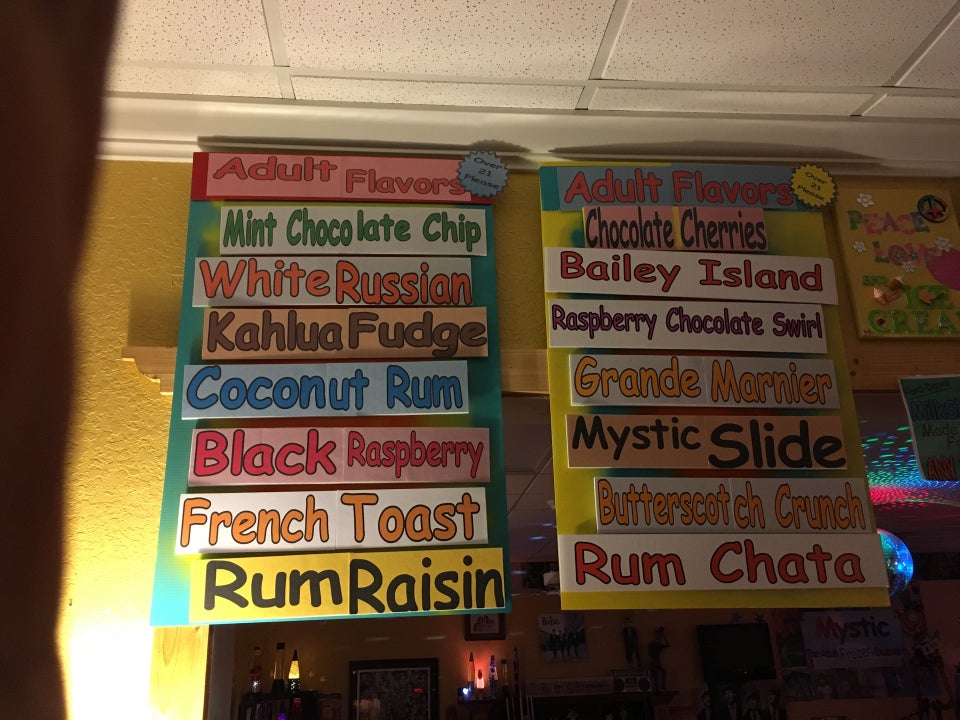 Adult Flavors
Over
21
Please
Mint Chocolate Chip
White Russian
Kahlua Fudge
Coconut Rum
Black Raspberry
French Toast
Rum Raisin
Adult Flavors
Over
21
Please
Chocolate Cherries
Bailey Island
Raspberry Chocolate Swirl
Grande Marnier
Mystic Slide
Butterscotch Crunch
Rum Chata
PEACE
LOVE
ICE
CREA
Made
ANY
Mystic
The Adult Frozen